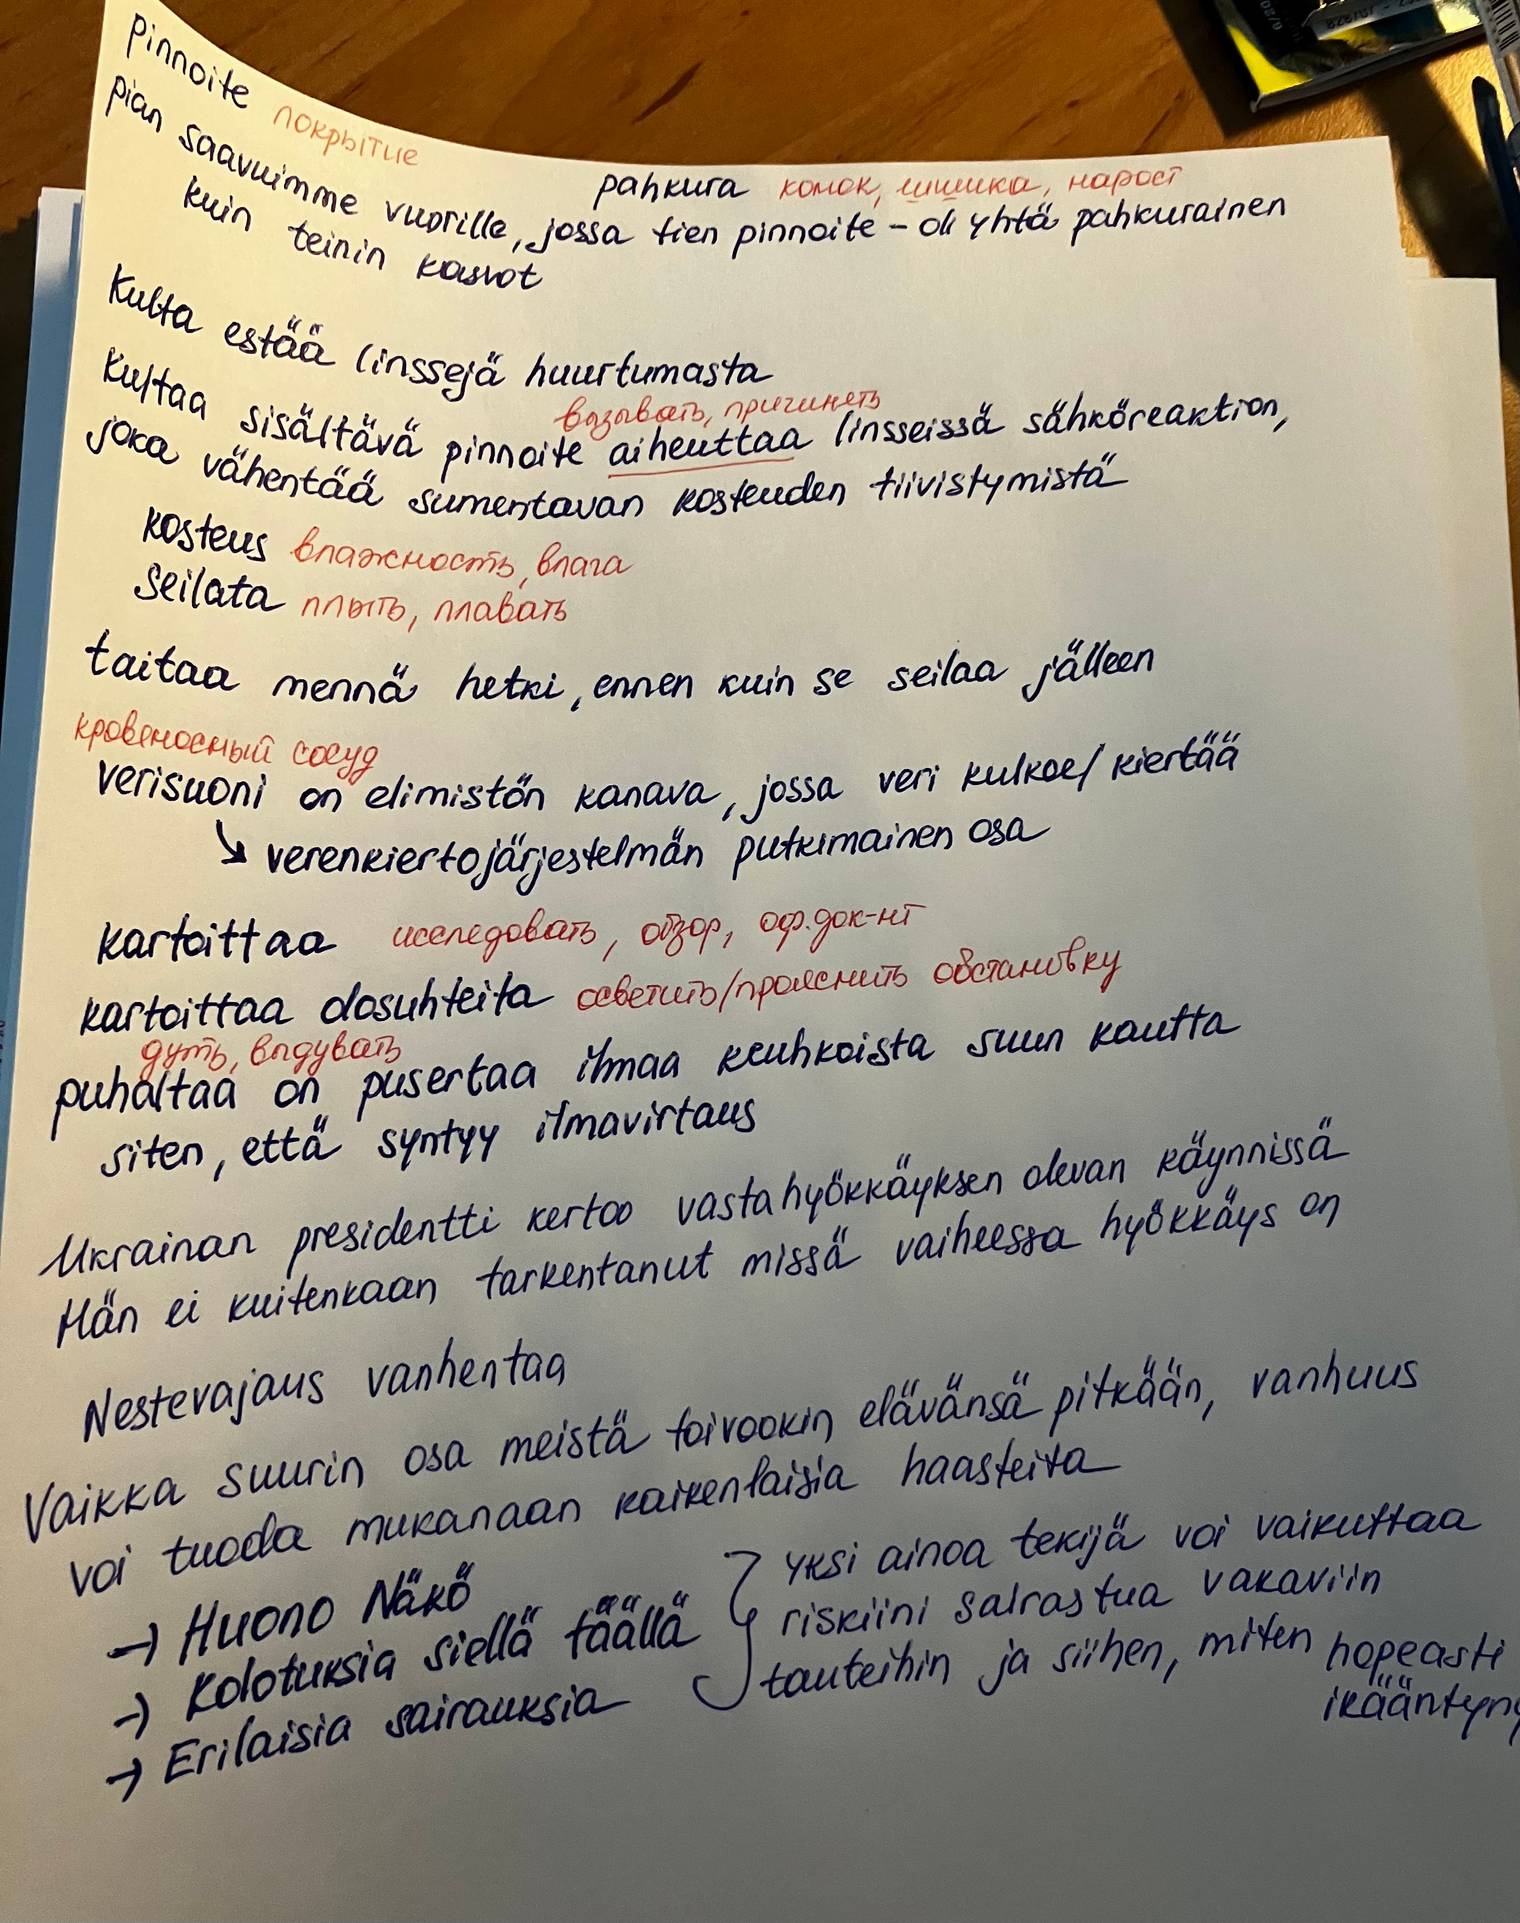 pinnoite покрытие
pahkura комок, шишка, нарост
pian saavuimme vuorille, jossa tien pinnoite - oli yhtä pahkurainen
kuin teinin kasvot
Kulta estää linssejä huurtumasta
вызывать, причинять
Kultaa sisältävä pinnoite aiheuttaa linsseissä sähköreaktion,
joka vähentää sumentavan kosteuden tiivistymistä
kosteus влажность, влага
seilata плыть, плавать
taitaa mennä hetki, ennen kuin se seilaa jälleen
кровеносный сосуд
verisuoni on elimistön kanava, jossa veri kulkee/kiertää
↘ verenkiertojärjestelmän putkimainen osa
kartoittaa исследовать, обзор, оф.док-нт
kartoittaa olosuhteita осветить/прояснить обстановку
дуть, выдувать
puhaltaa on pusertaa ilmaa keuhkoista suun kautta
siten, että syntyy ilmavirtaus
Ukrainan presidentti kertoo vastahyökkäyksen olevan käynnissä
Hän ei kuitenkaan tarkentanut missä vaiheessa hyökkäys on
Nestevajaus vanhentaa
Vaikka suurin osa meistä toivookin elävänsä pitkään, vanhuus
voi tuoda mukanaan kaikenlaisia haasteita
→ Huono Näkö
→ Kolotuksia siellä täällä
→ Erilaisia sairauksia
yksi ainoa tekijä voi vaikuttaa
riskiini sairastua vakaviin
tauteihin ja siihen, miten hopeasti
ikääntyn